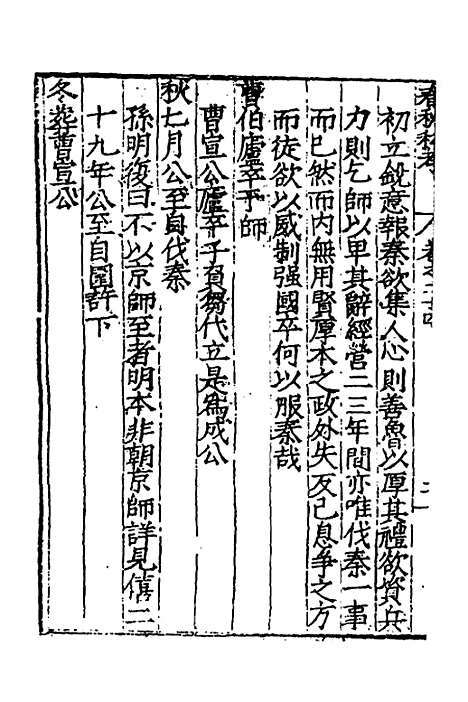 初立銳意報秦欲集人心則善魯以厚其禮欲資兵
力則乞師以卑其辭經營二三年間亦唯伐秦一事
而已然而内無用賢厚本之政外失反己息争之方
而徒欲以威制强國卒何以服秦哉
曹伯廬卒于師
曹宣公廬卒子負芻代立是為成公
秋七月公至自伐秦
孫明復曰不以京師至者明本非朝京師詳見僖二
十九年公至自圍許下
冬葬曹宣公